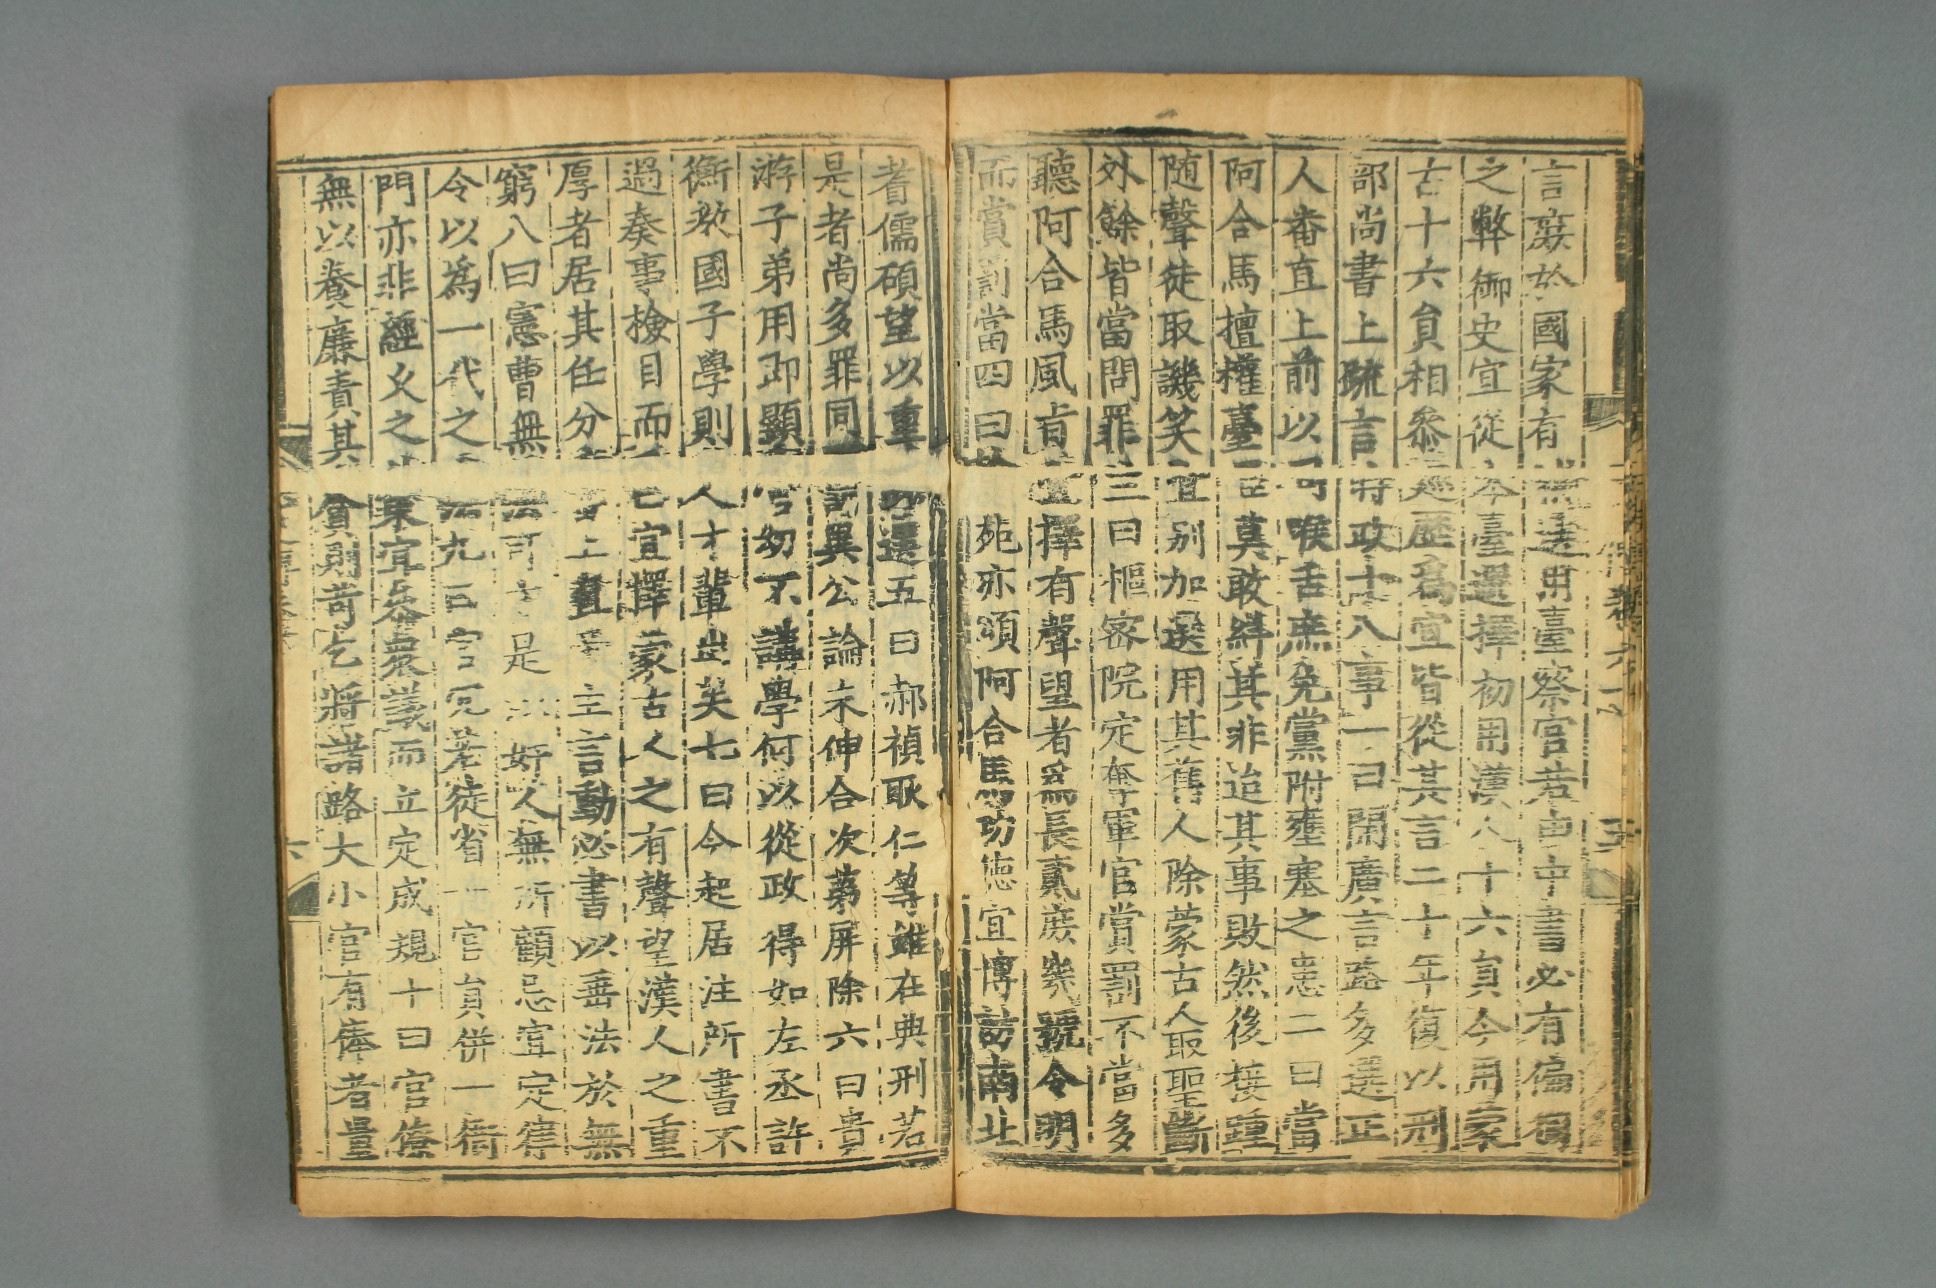 言寔於國家有補選用臺察官若由中書必有偏徇
之弊御史宜從本臺選擇初用漢人十六員今用蒙
古十六員相參巡歷爲宜皆從其言二十年復以刑
部尚書上疏言時政十八事一曰開廣言路多選正
人番直上前以司喉舌庶免黨附壅塞之患二曰當
阿合馬擅權臺臣莫敢糾其非迨其事敗然後接踵
随聲徒取譏笑宜别加選用其舊人除蒙古人取聖斷
外餘皆當問罪三曰樞密院定奪軍官賞罰不當多
聽阿合馬風旨宜擇有聲望者爲長貳庶幾號令明
而賞罰當四曰翰苑亦頌阿合馬功德宜博訪南北
耆儒碩望以重此選五曰郝禎耿仁等雖在典刑若
是者尚多罪同罰異公論未伸合次第屏除六曰貴
游子弟用卽顯官幼不講學何以從政得如左丞許
衡教國子學則人才輩出矣七曰今起居注所書不
過奏事檢目而已宜擇蒙古人之有聲望漢人之重
厚者居其任分番上直帝主言動必書以垂法於無
窮八曰憲曹無法可守是以奸人無所顧忌宜定律
令以爲一代之法九曰官冗若徒省一官員併一衙
門亦非經久之策宜參衆議而立定成規十曰官僚
無以養廉責其貪則苛乞將諸路大小官有俸者量